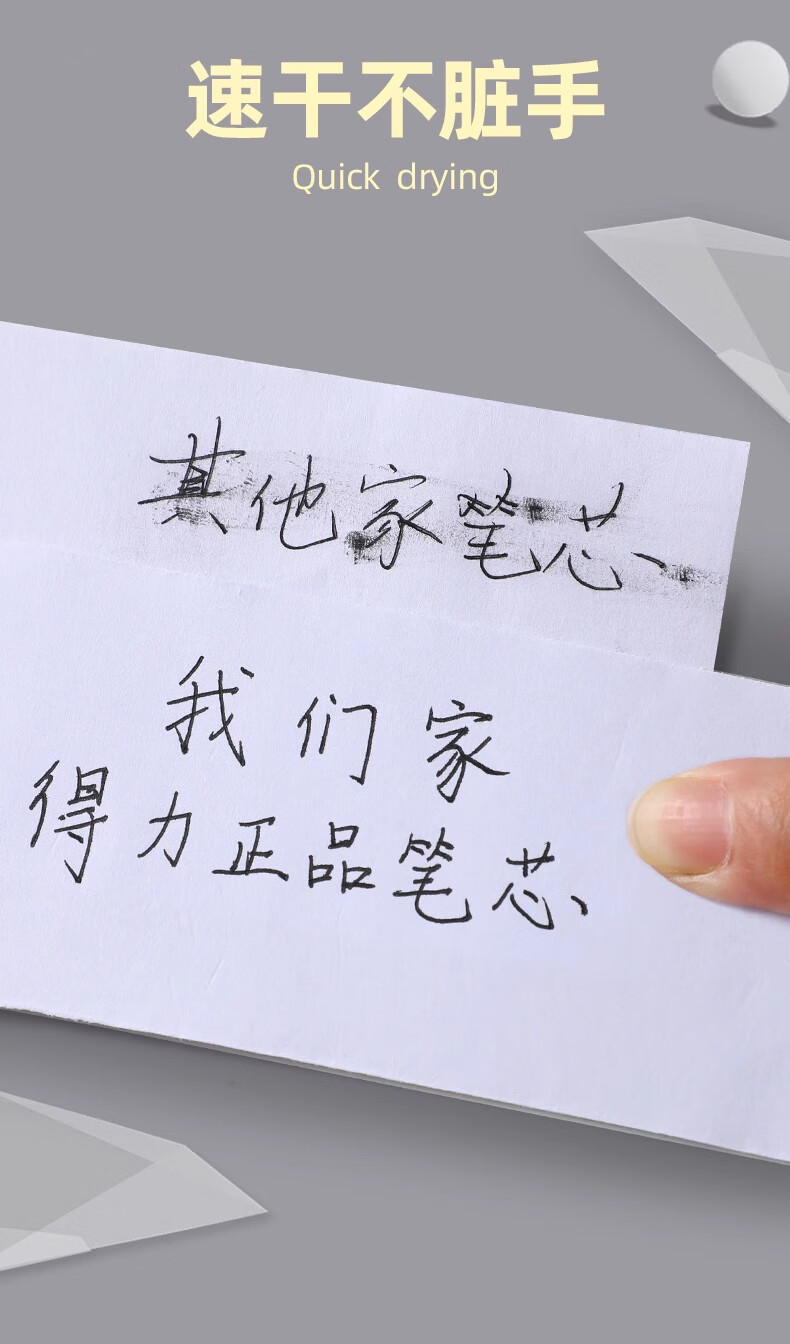 速干不脏手
Quick drying
其他家笔芯
我们家
得力正品笔芯